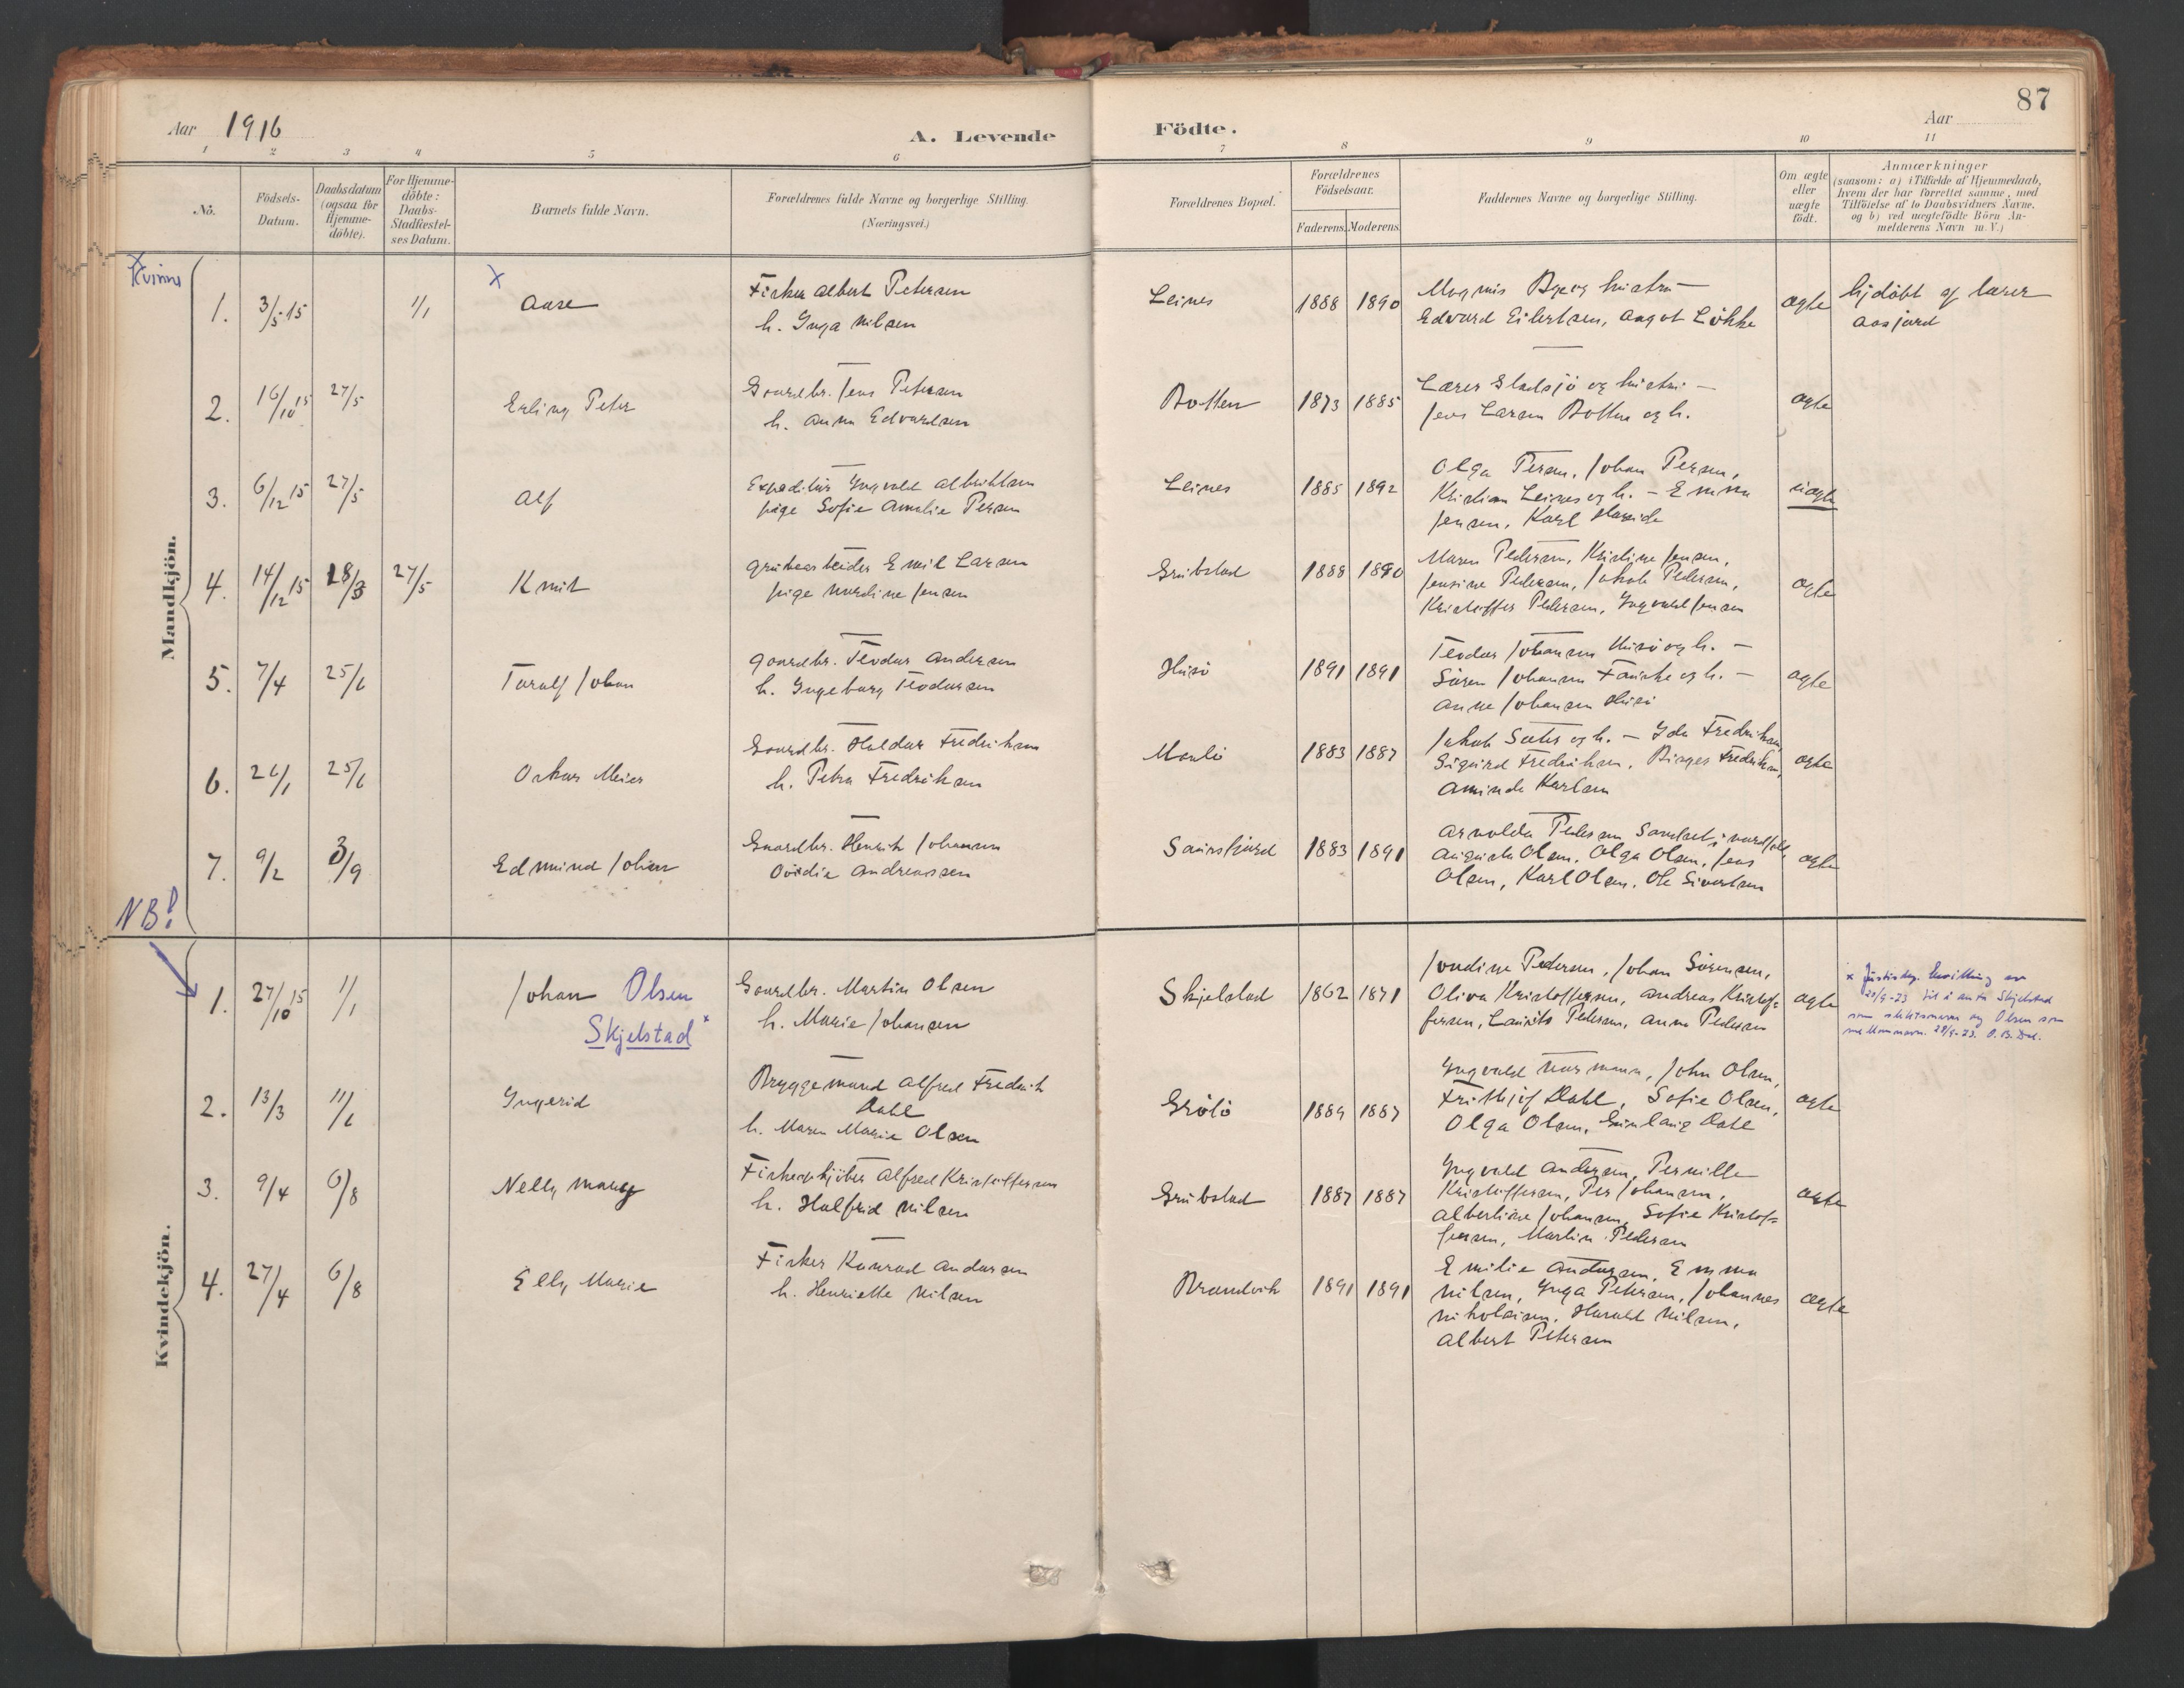 87
Aar 1916
A. Levende Födte.
Aar
1 2 3 4 5 6 7 8 9 10 11
No.
Födsels-Datum.
Daabsdatum (ogsaa for Hjemme-döbte).
For Hjemme-döbte: Daabs-Stadfæstel-ses Datum.
Barnets fulde Navn.
Forældrenes fulde Navne og borgerlige Stilling. (Næringsvei.)
Forældrenes Bopæl.
Forældrenes Födselsaar.
Faderens. Moderens.
Faddernes Navne og borgerlige Stilling.
Om ægte eller uægte födt.
Anmærkninger
(saasom: a) i Tilfælde af Hjemmedaab,
hvem der har forrettet samme, med
Tilföielse af to Daabsvidners Navne.
og b) ved uægtefödte Börn An-
melderens Navn m. V.)
Mandkjön.
x
Kvinne
1. 3/5 15 1/1 x Aase
Fisker Albert Petersen
h. Inga Nilsen
Leines 1888 1890
Magnus Bye og hustru —
Edvard Eilertsen, Angot Løkke
ægte
hjdøbt af lærer
Aasjord
2. 16/10 15 27/5 Erling Peter
Gaardbr. Jens Petersen
h. Anna Edvardsen
Botten 1873 1885
Lærer Sladsjø og hustru —
Jens Larsen Botten og h.
ægte
3. 6/12 15 27/5 Alf
Expeditør Ingvald Albriktsen
pige Sofie Amalie Persen
Leines 1885 1892
Olga Persen, Johan Persen,
Kristian Leines og h. — Emma
Jensen, Karl
uægte
4. 14/12 15 18/3 27/5 Knut
Grubearbeider Emil Larsen
pige Nordine Jensen
Grubstad 1888 1890
Maren Pedersen, Kristine Jensen,
Jensine Pedersen, Jakob Pedersen,
Kristoffer Pedersen, Ingvald Jensen
ægte
5. 7/4 25/6 Toralf Johan
Gaardbr. Teodor Andersen
h. Ingeborg Teodorsen
Husö 1891 1891
Teodor Johansen Husö og h. —
Sören Johansen Fauske og h. —
Anne Johansen Husö
ægte
6. 26/1 25/6 Oskar Meier
Gaardbr. Haldor Fredriksen
h. Petra Fredriksen
Manlö 1883 1887
Jakob Sæter og h. — Ida Fredriksen,
Sigurd Fredriksen, Birger Fredriksen,
Aminda Karlsen
ægte
7. 9/2 3/9 Edmund Johan
Gaardbr. Henrik Johansen
Ovidia Andreassen
Saursfjord 1883 1891
Arnolda Pedersen Sandset i Nordfold,
Augusta Olsen, Olga Olsen, Jens
Olsen, Karl Olsen, Ole Sivertsen
ægte
NB!
Kvindekjön.
1. 27/10 15 1/1 Johan Olsen
Skjelstad x
Gaardbr. Martin Olsen
h. Marie Johansen
Skjelstad 1862 1871
Jordine Pedersen, Johan Sörensen,
Oliva Kristoffersen, Andreas Kristof-
fersen, Laurits Pedersen, Anna Pedersen
ægte
x Justisdep. bevilling av
20/9-23 til å anta Skjelstad
som slektsnavn og Olsen som
mellomnavn. 28/9-23.
2. 13/3 11/6 Ingerid
Bryggemand Alfred Fredrik
Dahl
h. Maren Marie Olsen
Grölö 1889 1887
Ingvald Normann, John Olsen,
Frithjof Dahl, Sofie Olsen,
Olga Olsen, Gunlaug Dahl
ægte
3. 9/4 6/8 Nelly Maug
Fiskeopkjöber Alfred Kristoffersen
h. Halfrid Nilsen
Grubstad 1887 1887
Ingvald Andersen, Pernille
Kristoffersen, Per Johansen,
Albertine Johansen, Sofie Kristof-
fersen, Martin Pedersen
ægte
4. 27/4 6/8 Elly Marie
Fisker Konrad Andersen
h. Henriette Nilsen
Brandvik 1891 1891
Emilie Andersen, Emma
Nilsen, Inga Petersen, Johannes
Nikolaisen, Harald Nilsen,
Albert Petersen
ægte